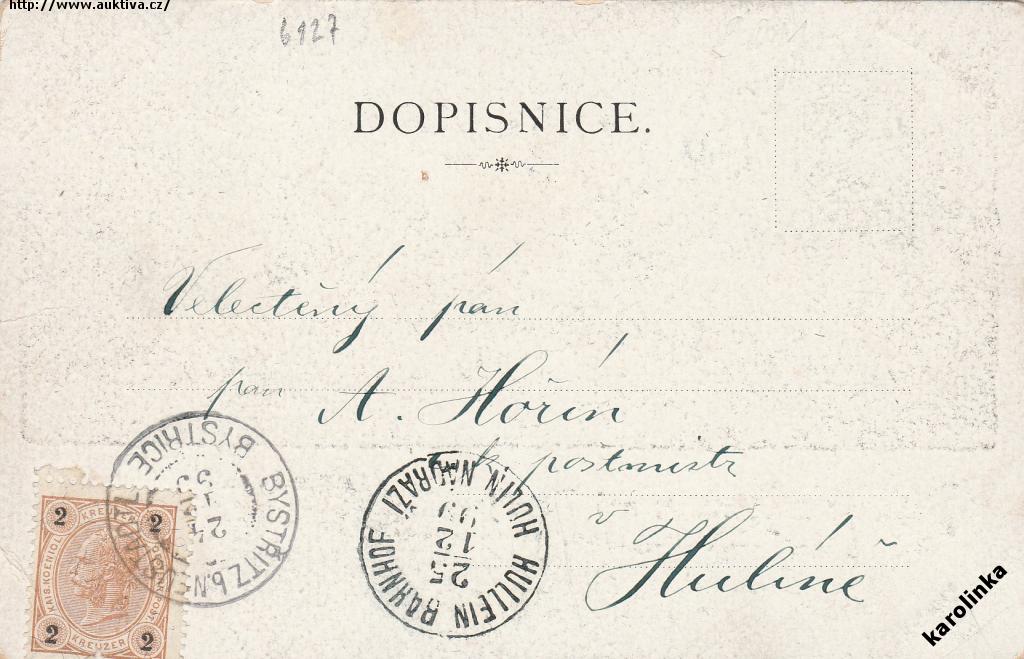 http://www.auktiva.cz/
6127
DOPISNICE.
Velectěný pán
pan A. Hořín
c. k. postmistr
v
Hulíně
BYSTŘITZ b.
BYSTŘICE
24
99
HULLEIN BAHNHOF
HULIN NADRAZI
25
12
99
2 KREUZER 2
KAIS. KOENIGL.
POST
2 KREUZER 2
karolinka